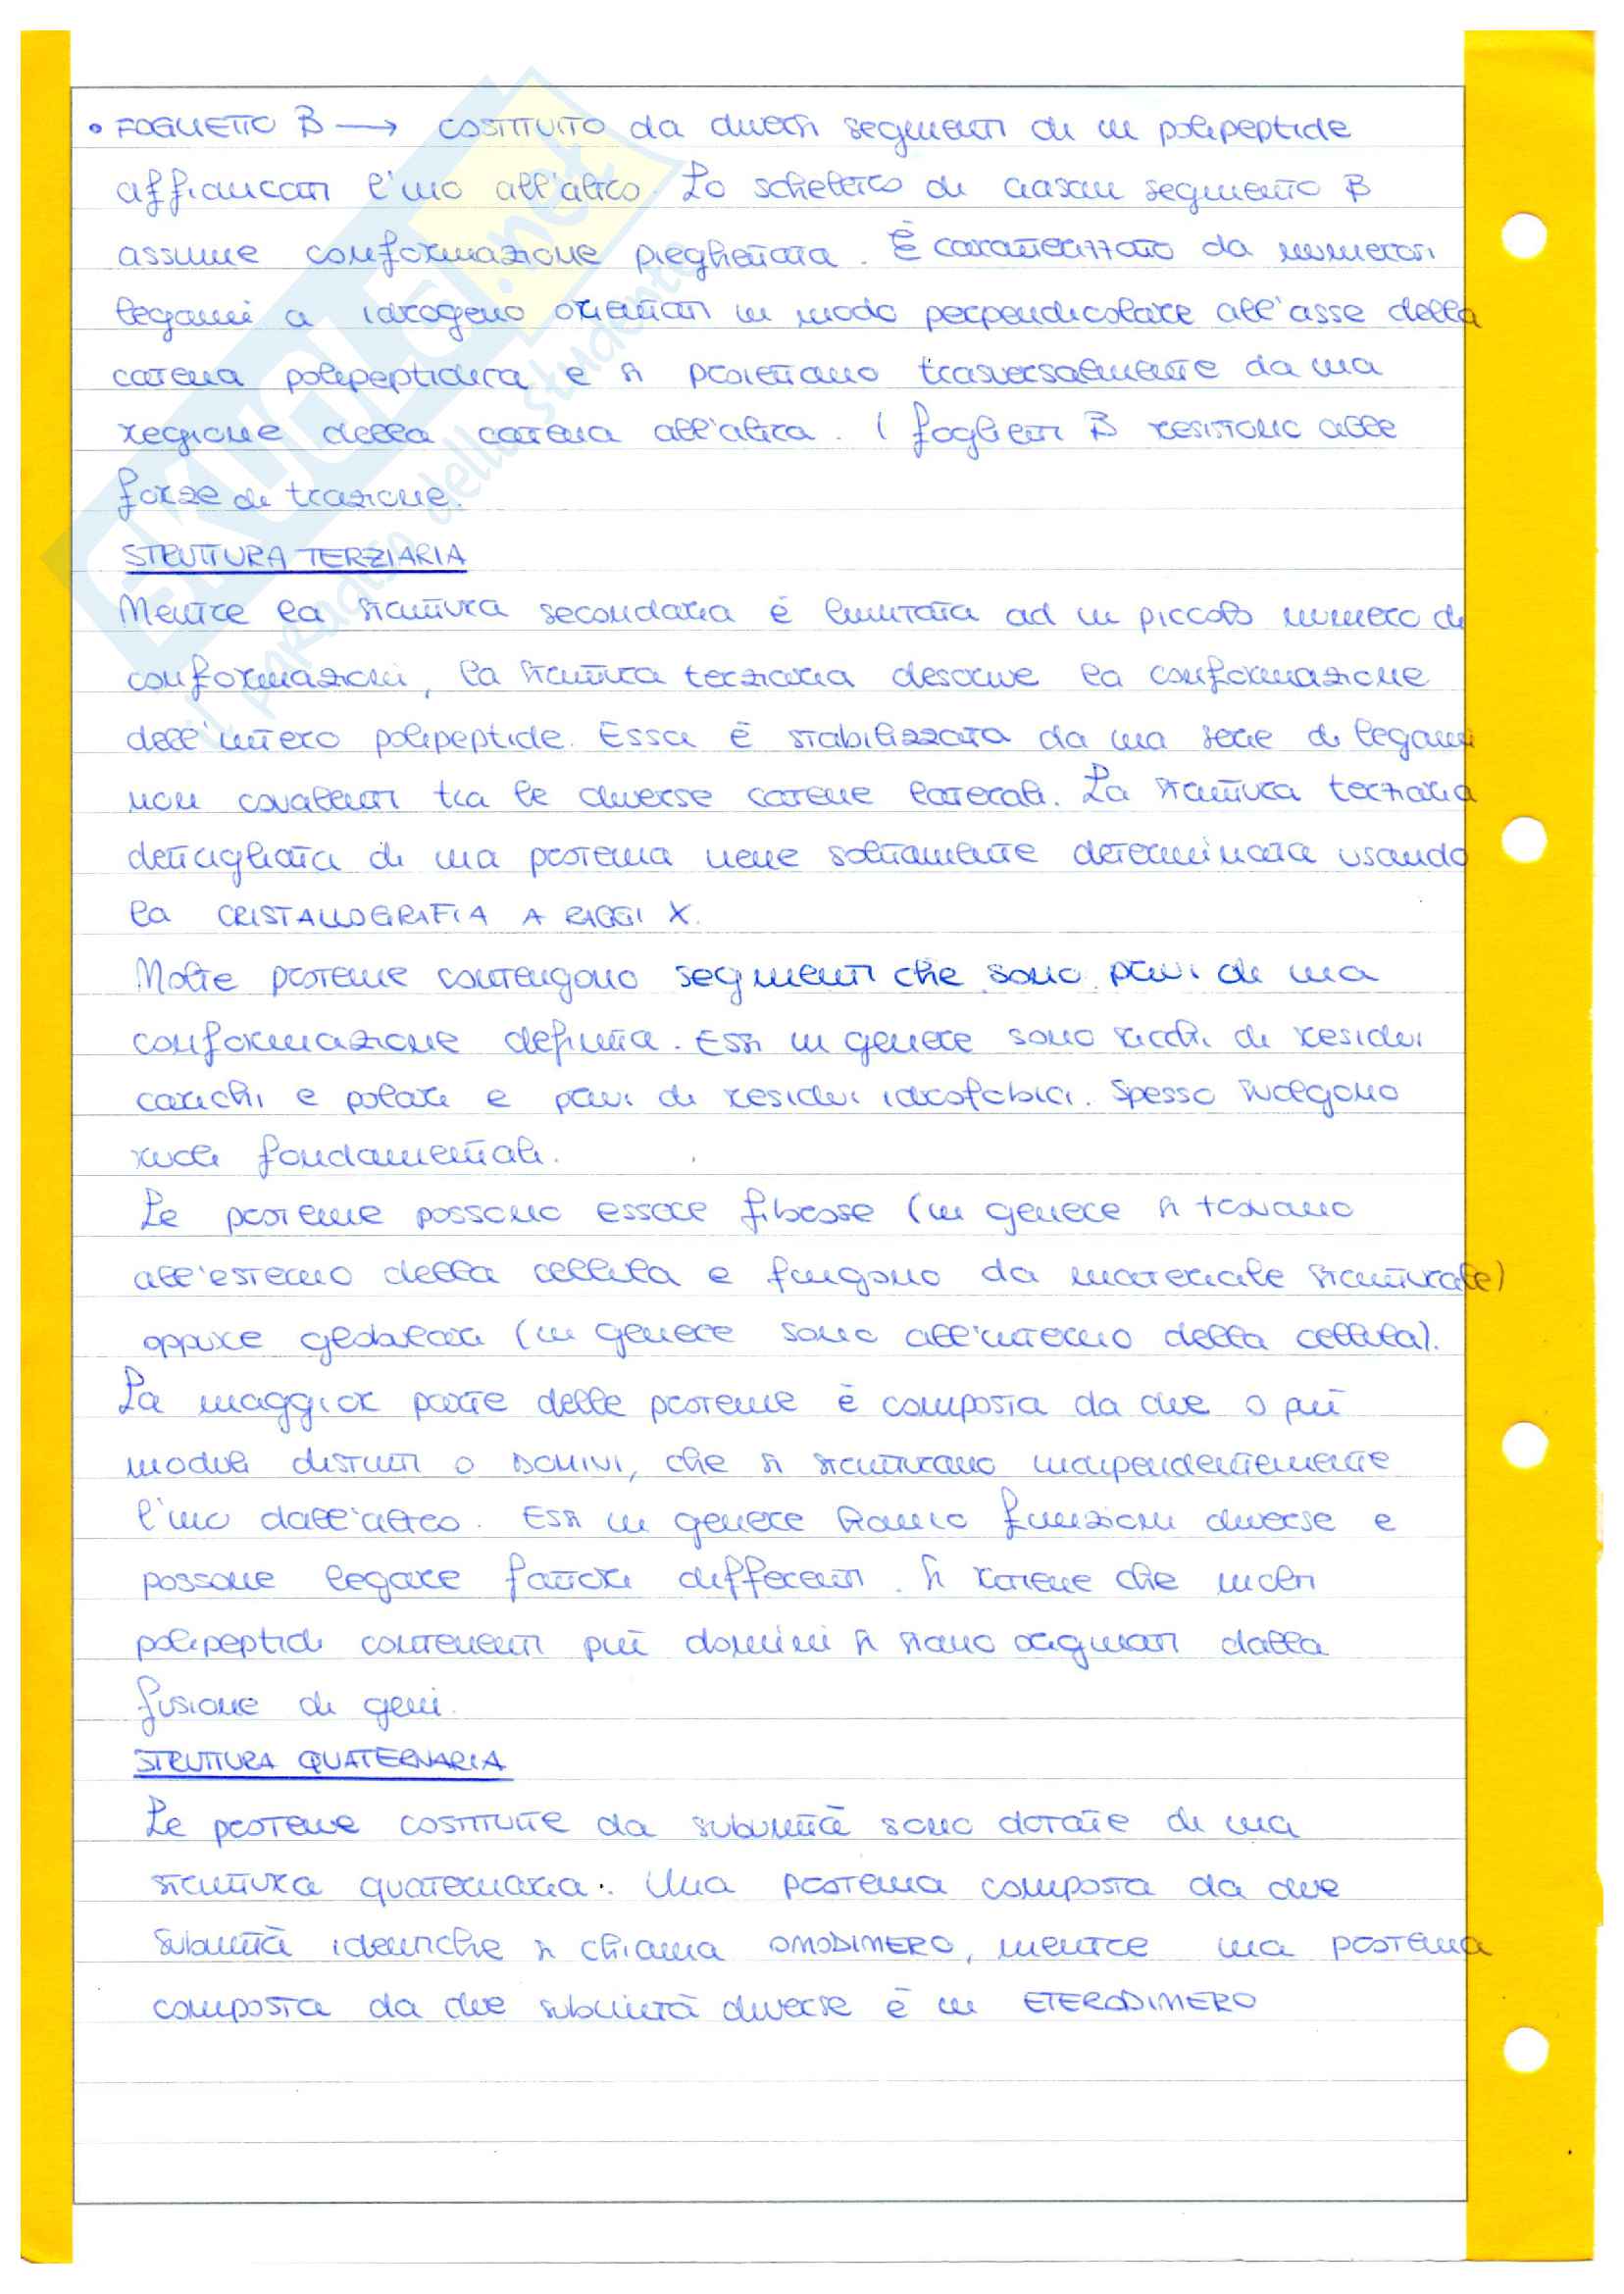 • FOGLIETTO β → COSTITUITO da diversi segmenti di un polipeptide
affiancati l'uno all'altro. Lo scheletro di ciascun segmento β
assume conformazione pieghettata. È caratterizzato da numerosi
legami a idrogeno orientati in modo perpendicolare all'asse della
catena polipeptidica e si proiettano trasversalmente da una
regione della catena all'altra. I foglietti β resistono alle
forze di trazione.
STRUTTURA TERZIARIA
Mentre la struttura secondaria è limitata ad un piccolo numero di
conformazioni, la struttura terziaria descrive la conformazione
dell'intero polipeptide. Essa è stabilizzata da una serie di legami
non covalenti tra le diverse catene laterali. La struttura terziaria
dettagliata di una proteina viene solitamente determinata usando
la CRISTALLOGRAFIA A RAGGI X.
Molte proteine contengono segmenti che sono privi di una
conformazione definita. Essi in genere sono ricchi di residui
carichi e polari e privi di residui idrofobici. Spesso svolgono
ruoli fondamentali.
Le proteine possono essere fibrose (in genere si trovano
all'esterno della cellula e fungono da materiale strutturale)
oppure globulari (in genere sono all'interno della cellula).
La maggior parte delle proteine è composta da due o più
moduli distinti o DOMINI, che si strutturano indipendentemente
l'uno dall'altro. Essi in genere hanno funzioni diverse e
possono legare fattori differenti. Si ritiene che molti
polipeptidi contenenti più domini si siano originati dalla
fusione di geni.
STRUTTURA QUATERNARIA
Le proteine costituite da subunità sono dotate di una
struttura quaternaria. Una proteina composta da due
subunità identiche si chiama OMODIMERO, mentre una proteina
composta da due subunità diverse è un ETERODIMERO
SKUOLA.net
il paradiso dello studente